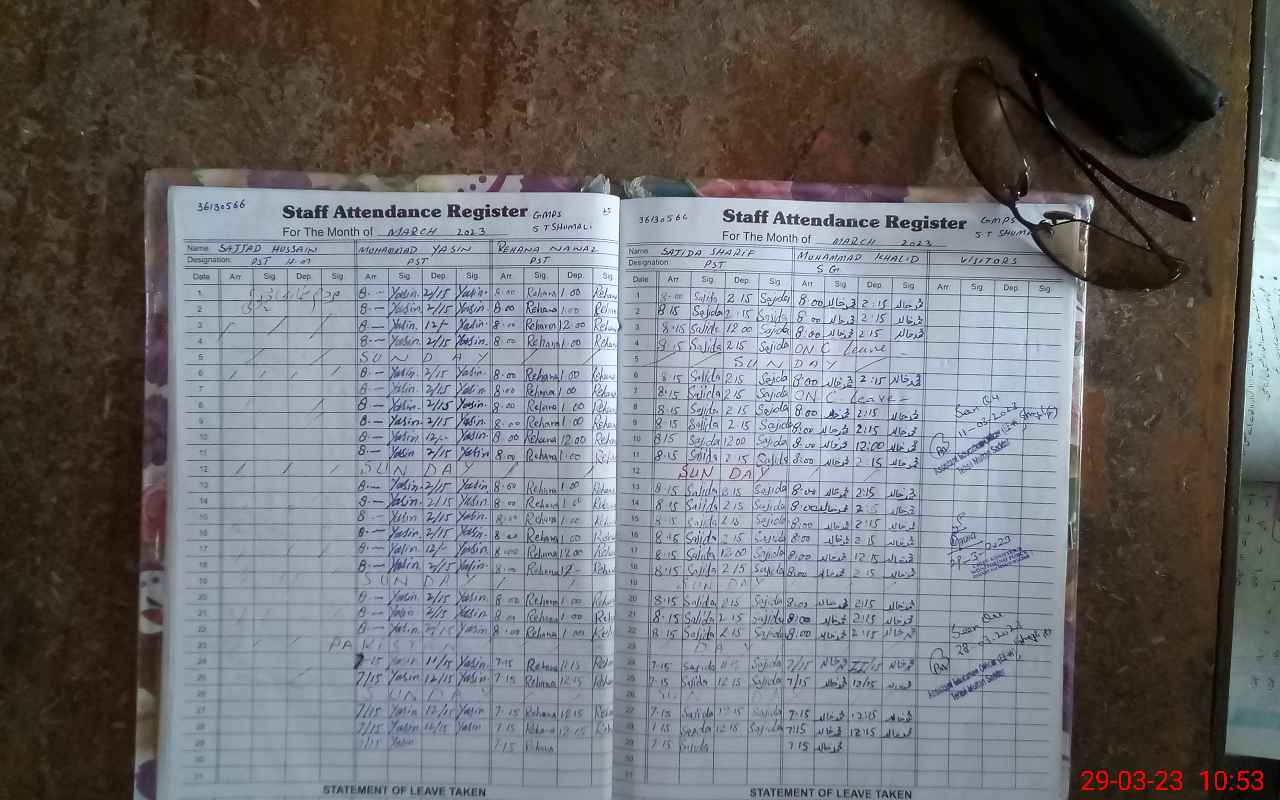 36130566
Staff Attendance Register GMPS
For The Month of MARCH 2023 S T SHUMALI
Name SAJJAD HUSSAIN MUHAMMAD YASIN REHANA NAWAZ
Designation: PST PST PST
Date Arr. Sig. Dep. Sig. Arr. Sig. Dep. Sig. Arr. Sig. Dep. Sig.
1 8 Yasin 2/15 Yasin 8:00 Rehana 1:00
2 8 Yasin 2/15 Yasin 8:00 Rehana 1:00
3 8 Yasin 12/ Yasin 8:00 Rehana 12:00
4 8 Yasin 2/15 Yasin 8:00 Rehana 1:00
5 SUNDAY
6 8 Yasin 2/15 Yasin 8:00 Rehana 1:00
7 8 Yasin 2/15 Yasin 8:00 Rehana 1:00
8 8 Yasin 2/15 Yasin 8:00 Rehana 1:00
9 8 Yasin 2/15 Yasin 8:00 Rehana 1:00
10 8 Yasin 12/ Yasin 8:00 Rehana 12:00
11 8 Yasin 2/15 Yasin 8:00 Rehana 1:00
12 SUNDAY
13 8 Yasin 2/15 Yasin 8:00 Rehana 1:00
14 8 Yasin 2/15 Yasin 8:00 Rehana 1:00
15 8 Yasin 2/15 Yasin 8:00 Rehana 1:00
16 8 Yasin 2/15 Yasin 8:00 Rehana 1:00
17 8 Yasin 12/ Yasin 8:00 Rehana 12:00
18 8 Yasin 2/15 Yasin 8:00 Rehana
19 SUNDAY
20 8 Yasin 2/15 Yasin 8:00 Rehana 1:00
21 8 Yasin 2/15 Yasin 8:00 Rehana 1:00
22 8 Yasin 2/15 Yasin 8:00 Rehana 1:00
23 PAKISTAN
24 7-15 Yasin Yasin 7:15 Rehana
25 7/15 Yasin 12/15 Yasin 7:15 Rehana 12:15
26 SUNDAY
27 7/15 Yasin 12/15 Yasin 7:15 Rehana 12:15
28 7/15 Yasin 12/15 Yasin 7:15 Rehana 12:15
29 7/15 Yasin 7:15 Rehana
30
31
STATEMENT OF LEAVE TAKEN
36130566
Staff Attendance Register GMPS
For The Month of MARCH 2023 S T SHUMA
Name SAJIDA SHARIF MUHAMMAD KHALID VISITORS
Designation: PST
Date Arr. Sig. Dep. Sig. Arr. Sig. Dep. Sig. Arr. Sig. Dep. Sig.
1 8:00 Sajida 2:15 Sajida 8:00 محمد خالد 2:15 محمد خالد
2 8:15 Sajida 2:15 Sajida 8:00 محمد خالد 2:15 محمد خالد
3 8:15 Sajida 12:00 Sajida 8:00 محمد خالد 2:15 محمد خالد
4 8:15 Sajida 2:15 Sajida ON C leave
5 SUNDAY
6 8:15 Sajida 2:15 Sajida 8:00 محمد خالد 2:15 محمد خالد
7 8:15 Sajida 2:15 Sajida ON C leave
8 8:15 Sajida 2:15 Sajida 8:00 محمد خالد 2:15 محمد خالد
9 8:15 Sajida 2:15 Sajida 8:00 محمد خالد 2:15 محمد خالد
10 8:15 Sajida 12:00 Sajida 8:00 محمد خالد 12:00 محمد خالد
11 8:15 Sajida 2:15 Sajida 8:00 محمد خالد 2:15 محمد خالد
12 SUNDAY
13 8:15 Sajida 2:15 Sajida 8:00 محمد خالد 2:15 محمد خالد
14 8:15 Sajida 2:15 Sajida 8:00 محمد خالد 2:15 محمد خالد
15 8:15 Sajida 2:15 Sajida 8:00 محمد خالد 2:15 محمد خالد
16 8:15 Sajida 2:15 Sajida 8:00 محمد خالد 2:15 محمد خالد
17 8:15 Sajida 12:00 Sajida 8:00 محمد خالد 12:15 محمد خالد
18 8:15 Sajida 2:15 Sajida 8:00 محمد خالد 2:15 محمد خالد
19 SUNDAY
20 8:15 Sajida 2:15 Sajida 8:00 محمد خالد 2:15 محمد خالد
21 8:15 Sajida 2:15 Sajida 8:00 محمد خالد 2:15 محمد خالد
22 8:15 Sajida 2:15 Sajida 8:00 محمد خالد 2:15 محمد خالد
23 DAY
24 7:15 Sajida Sajida 7/15 محمد خالد محمد خالد
25 7:15 Sajida 12:15 Sajida 7/15 محمد خالد 12/15 محمد خالد
26 SUN
27 7:15 Sajida 12:15 Sajida 7:15 محمد خالد 12:15 محمد خالد
28 7:15 Sajida 12:15 Sajida 7:15 محمد خالد 12:15 محمد خالد
29 7:15 Sajida 7:15 محمد خالد
30
31
STATEMENT OF LEAVE TAKEN
11-03-2023
28-03-2023
29-03-23 10:53